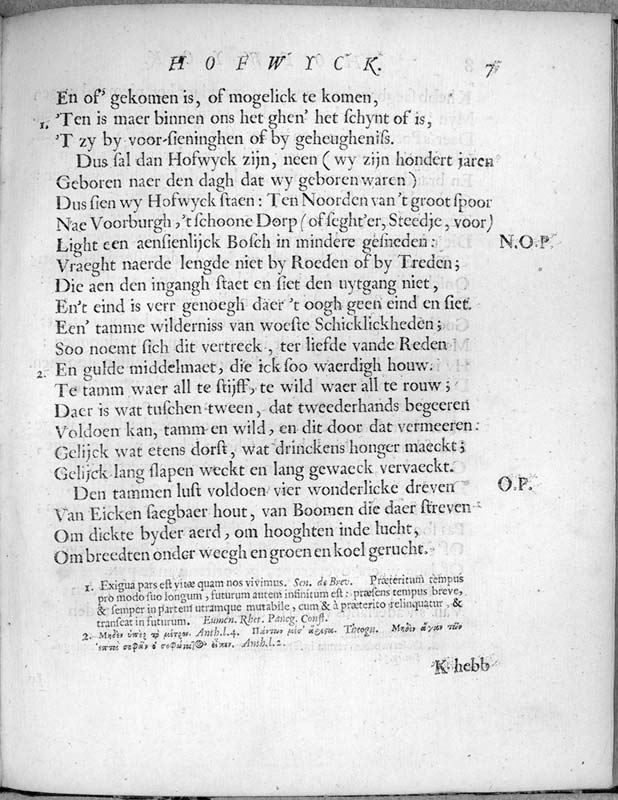 HOFWYCK. 7
En of' gekomen is, of mogelick te komen,
1. 'Ten is maer binnen ons het ghen' het schynt of is,
'T zy by voor-sieninghen of by geheugheniss.
Dus sal dan Hofwyck zijn, neen (wy zijn hondert jaren
Geboren naer den dagh dat wy geboren waren)
Dus sien wy Hofwyck staen: Ten Noorden van 't groot spoor
Nae Voorburgh, 't schoone Dorp (of seght'er, Steedje, voor)
Light een aensienlijck Bosch in mindere gesneden: N.O.P.
Vraeght naer de lengde niet by Roeden of by Treden;
Die aen den ingangh staet en siet den uytgang niet,
En't eind is verr genoegh daer 't oogh geen eind en siet.
Een' tamme wilderniss van woeste Schicklickheden;
Soo noemt sich dit vertreck, ter liefde vande Reden
2. En gulde middelmaet, die ick soo waerdigh houw.
Te tamm waer all te stijff, te wild waer all te rouw;
Daer is wat tuschen tween, dat tweederhands begeeren
Voldoen kan, tamm en wild, en dit door dat vermeeren:
Gelijck wat etens dorst, wat drinckens honger maeckt;
Gelijck lang slapen weckt en lang gewaeck vervaeckt.
Den tammen lust voldoen vier wonderlicke dreven O.P.
Van Eicken saegbaer hout, van Boomen die daer streven
Om dickte by der aerd, om hooghten inde lucht,
Om breedten onder weegh en groen en koel gerucht.
1. Exigua pars est vitæ quam nos vivimus. Sen. de Brev. Præteritum tempus
pro modo suo longum, futurum autem infinitum est: præsens tempus breve,
& semper in partem utramque mutabile, cum & à præterito relinquatur, &
transeat in futurum. Eumen. Rhet. Paneg. Const.
2. Μηδὲν ὑπὲρ τὸ μέτρον. Anth. l. 4. Πάντων μέσ' ἄριστα. Theogn. Μηδὲν ἄγαν τῶν
ἑπτὰ σοφῶν ὁ σοφώτατος εἶπεν. Anth. l. 2.
K hebb